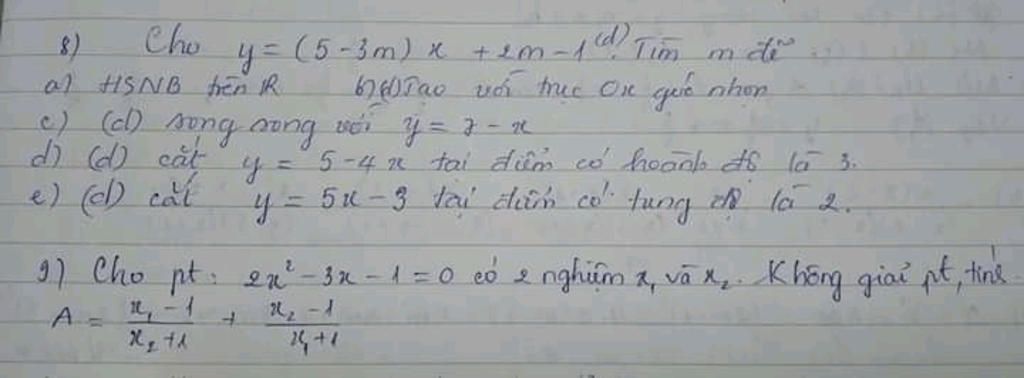 8) Cho y = (5 - 3m) x + 2m - 1 (d). Tìm m để
a) HSNB trên R b) (d) Tạo với trục Ox góc nhọn
c) (d) song song với y = 7 - x
d) (d) cắt y = 5 - 4x tại điểm có hoành độ là 3.
e) (d) cắt y = 5x - 3 tại điểm có tung độ là 2.
9) Cho pt: 2x² - 3x - 1 = 0 có 2 nghiệm x₁ và x₂. Không giải pt, tính
A = (x₁ - 1)/(x₂ + 1) + (x₂ - 1)/(x₁ + 1)